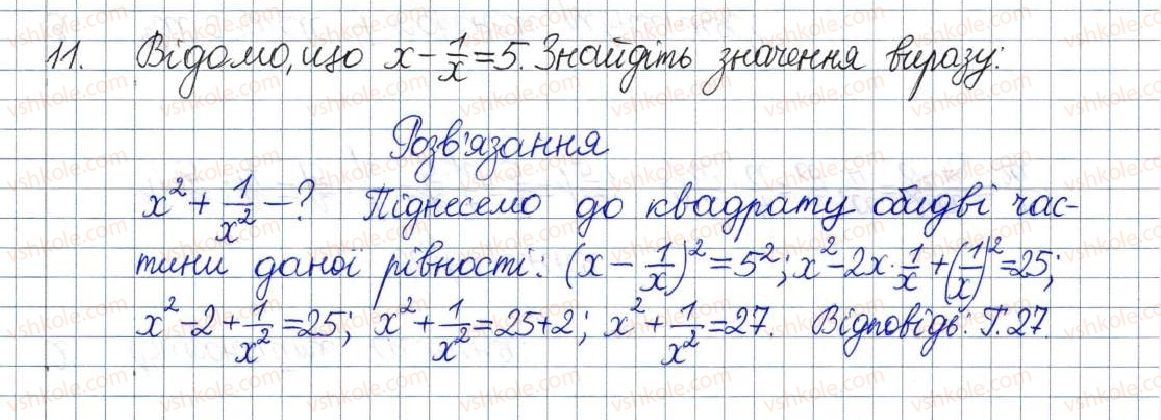 11. Відомо, що x - 1/x = 5. Знайдіть значення виразу:
Розв'язання
x² + 1/x² - ? Піднесемо до квадрату обидві час-
тини даної рівності: (x - 1/x)² = 5²; x² - 2x · 1/x + (1/x)² = 25;
x² - 2 + 1/x² = 25; x² + 1/x² = 25 + 2; x² + 1/x² = 27. Відповідь: Г. 27